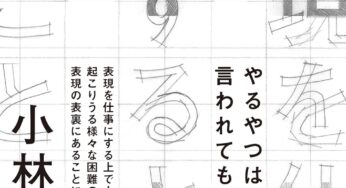 を
やるやつは
言われても
る
表現を仕事にする上で
起こりうる様々な困難の
表現の表裏にあること
小林
と